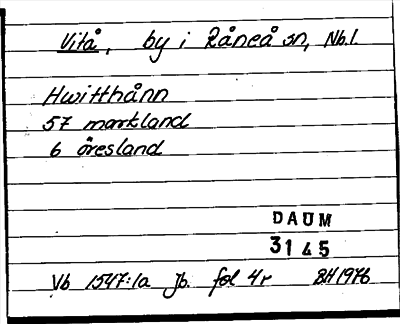 Vitå, by i Råneå sn, Nb.l.
Hwitthånn
57 markland
6 öresland
DAUM
3145
Vb 1547:1a Jb. fol 4r BH 1976